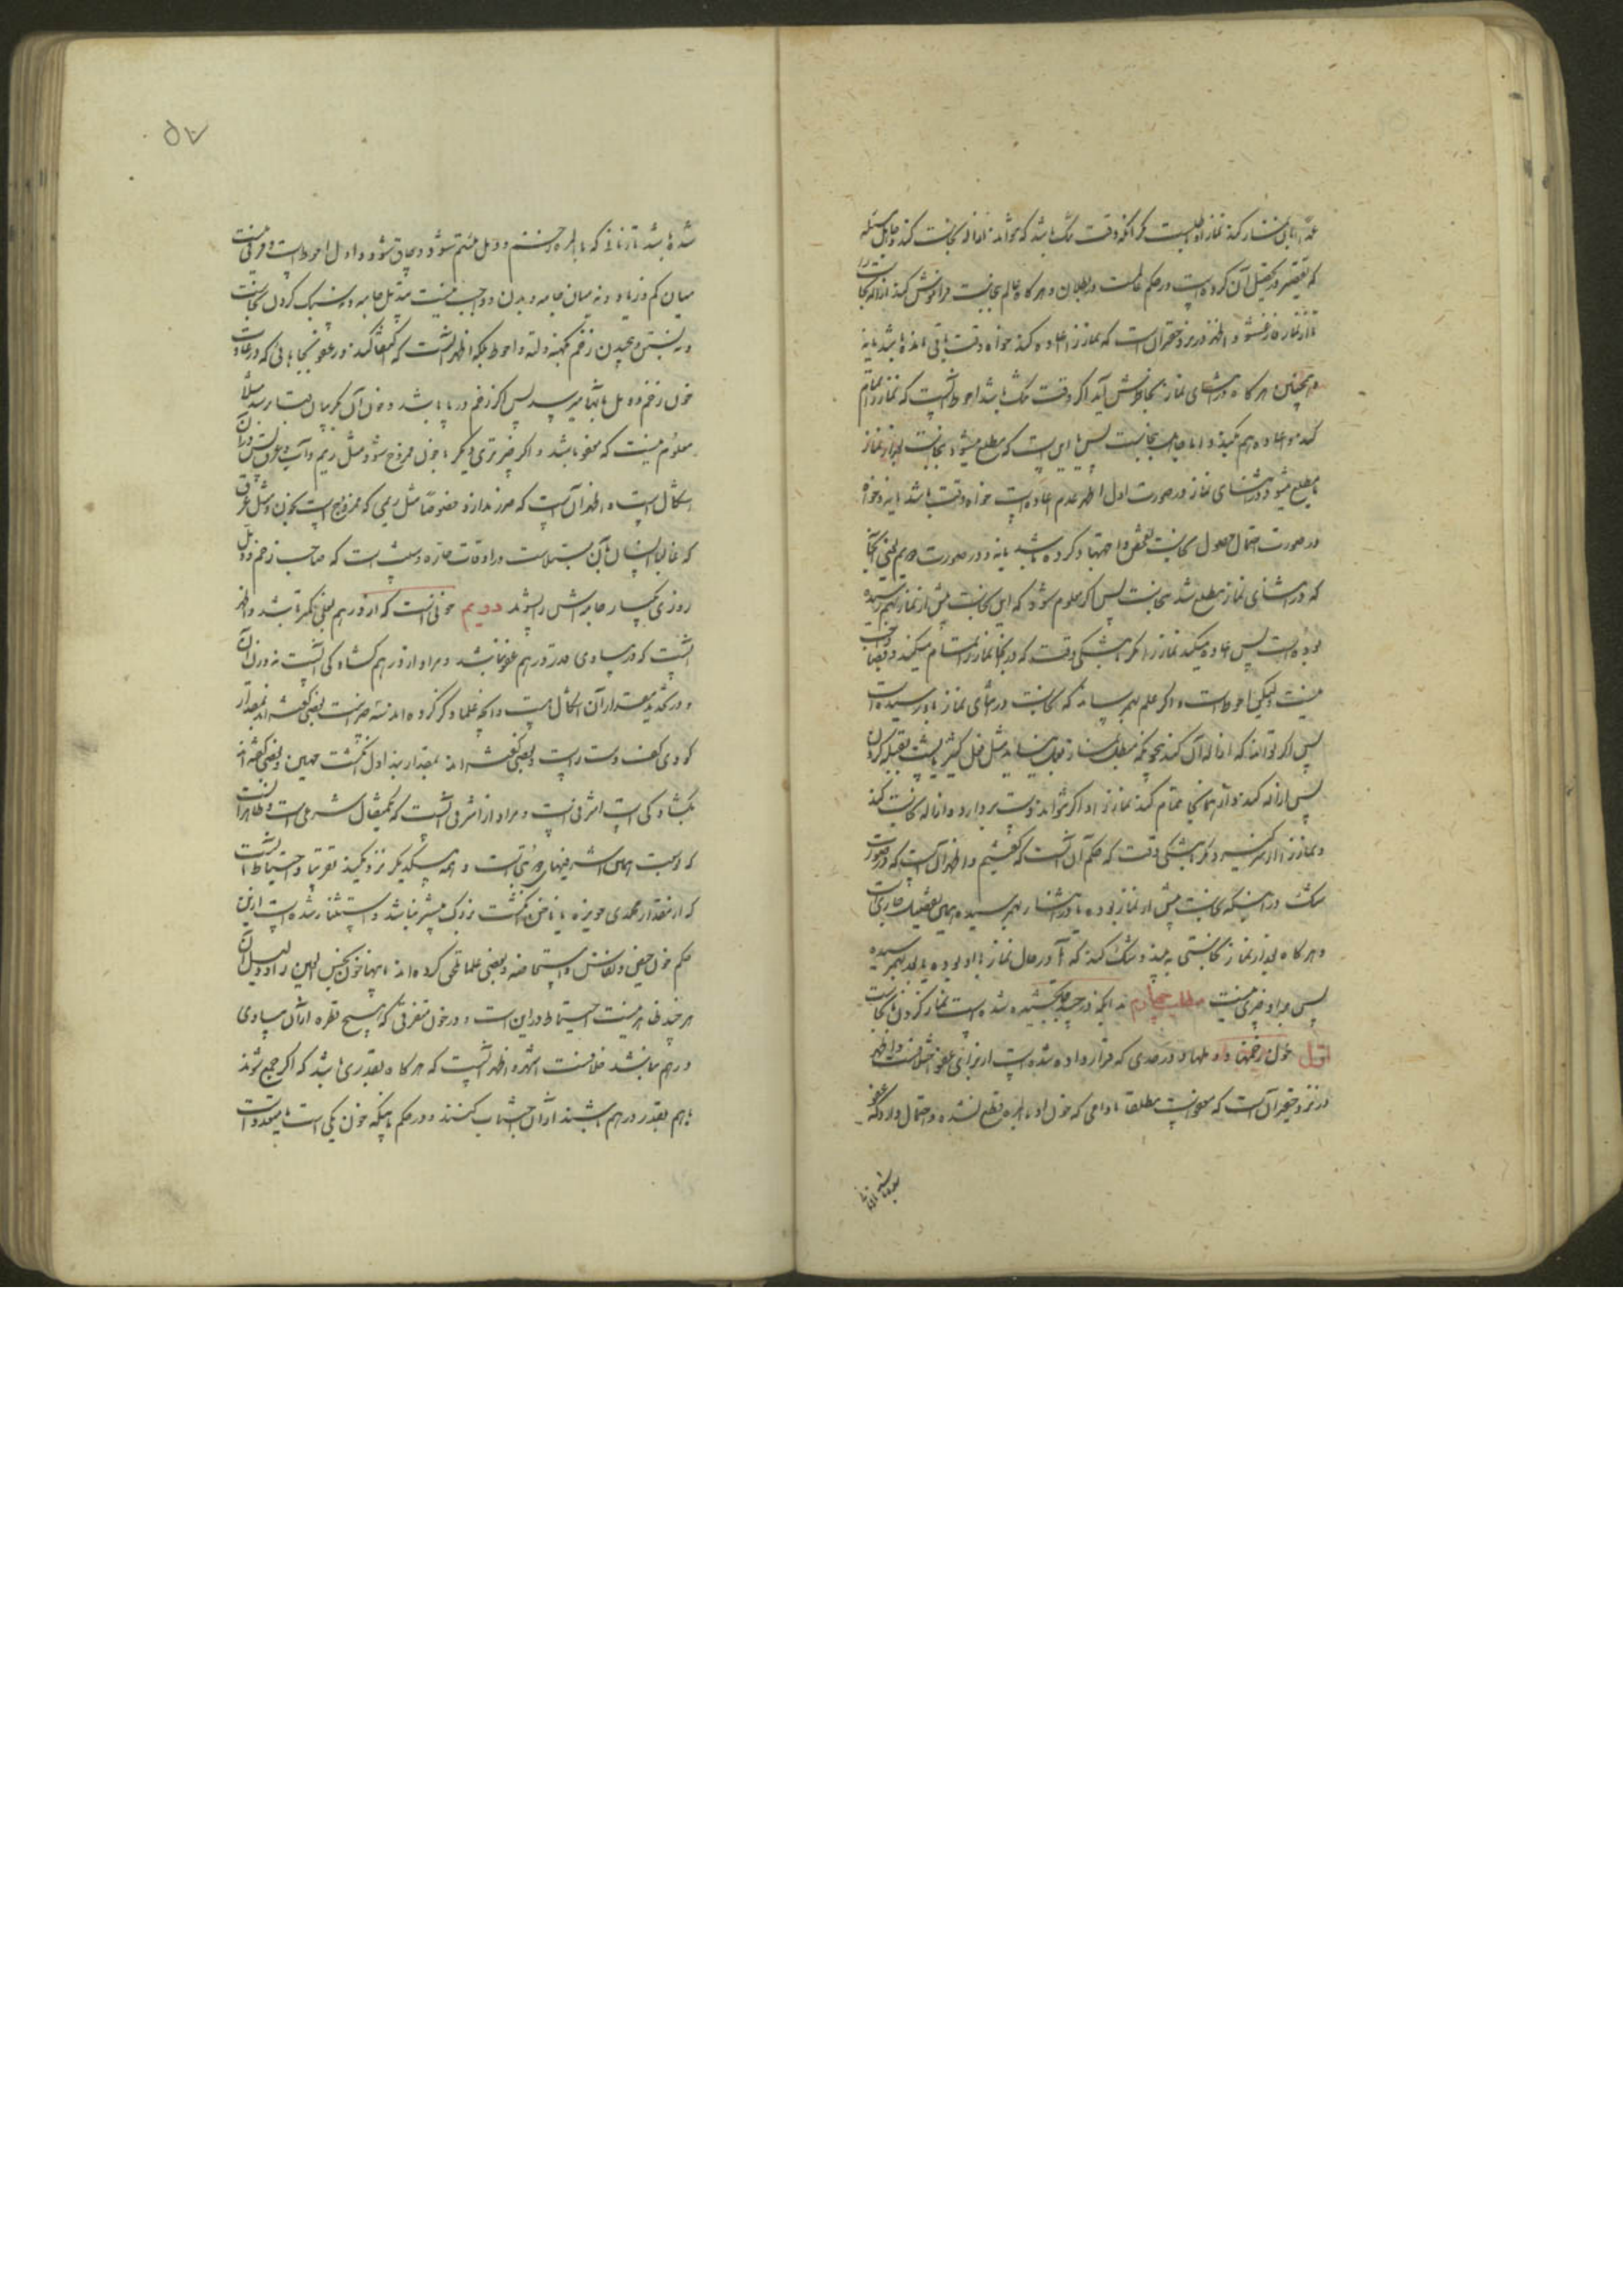 عمداً با آن نماز کند نماز او باطلست مگر آنکه وقت تنگ باشد که نتواند ازاله نجاست کند و جاهل مسئله
که تقصیر در تحصیل آن کرده است در حکم عالمست در بطلان و هر گاه عالم بنجاست فراموش کند ازاله نجاست را
تا از نماز فارغ شود اظهر در نزد حقیر آن است که نماز را اعاده کند خواه وقت باقی مانده باشد یا نه
و همچنین هر گاه در اثنای نماز بخاطرش آید اگر وقت تنگ باشد احوط آنست که نماز را تمام
کند و اعاده هم میکند و اما جاهل بنجاست پس یا این است که مطلع میشود بنجاست بعد از نماز
یا مطلع میشود در اثنای نماز در صورت اول اظهر عدم اعاده است خواه وقت باشد یا نه و خواه
در صورت احتمال حصول نجاست تفحص و اجتهاد کرده باشد یا نه و در صورت دویم یعنی آنجا
که در اثنای نماز مطلع شد بنجاست پس اگر معلوم شود که این نجاست پیش از نماز بهم رسیده
بوده است پس اعاده میکند نماز را مگر به تنگی وقت که در آنجا نماز را تمام میکند و قضا واجب
نیست و لیکن احوط است و اگر علم بهم رساند که نجاست در اثنای نماز باو رسیده است
پس اگر تواند که ازاله آن کند بنحویکه مبطل نماز بعمل نیاید مثل فعل کثیر یا پشت بقبله کردن
پس ازاله کند و از همانجا تمام کند نماز را و اگر نتواند دست بردارد و ازاله نجاست کند
و نماز را از سر گیرد مگر به تنگی وقت که حکم آن آنست که گفتیم و اظهر آن است که در صورت
شک در اینکه نجاست پیش از نماز بوده یا در اثنا بهم رسیده همین تفصیل جاری است
و هر گاه بعد از نماز نجاستی به بیند و شک کند که آیا در حال نماز با او بوده یا بعد بهم رسیده
پس بر او چیزی نیست مطلب چهارم در آنکه در چند جا بخشیده شده است نماز کردن با نجاست
اول خون زخمها و دملها و در حدی که قرار داده شده است از برای عفو خلافست و اظهر
در نزد حقیر آن است که معفو است مطلقا مادامی که خون او بالمره قطع نشده و احتمال دارد که عفو
شده باشد تا زمانی که بالمره زخم و دمل ملتئم شود و چاق شود و اول احوط است و فرقی نیست
میان کم و زیاد و نه میان جامه و بدن و واجب نیست تبدیل جامه و سبک کردن نجاست
و نه بستن و پیچیدن زخم بکهنه و لته و احوط بلکه اظهر آنست که اکتفا کند در عفو بجاهائی که در عادت
خون زخم و دمل بآنها میرسد پس اگر زخم در پا باشد و خون آن بگریبان لباس رسد مثلا
معلوم نیست که معفو باشد و اگر چیز تری دیگر با خون ممزوج شود مثل ریم و آب و عرق پس در آن
اشکال است و اظهر آن است که ضرر ندارد خصوصاً مثل ریمی که ممزوج است بخون و مثل عرق
که غالباً انسان بآن مبتلاست در اوقات حاره و سنت است که صاحب زخم و دمل
روزی یکبار جامه اش را بشوید دویم خونی است که از درهم بغلی کمتر باشد و اظهر
آنست که در مساوی قدر درهم عفو نباشد و مراد از درهم گشادگی آنست نه وزن آن
و در تحدید مقدار آن اشکال هست و آنچه علما ذکر کرده اند سه چیز است بعضی گفته اند بمقدار
گودی کف دست است و بعضی گفته اند بمقدار بند اول انگشت مهین و بعضی گفته اند
بگشادگی اشرفی است و مراد از اشرفی آنست که یکمثقال شرعی است و ظاهر آنست
که وسعت همین اشرفیهای دو بتی است و همه بیکدیگر نزدیکند تقریباً و احتیاط آنست
که از مقدار محمدی حویزه یا ناخن انگشت بزرگ بیشتر نباشد و استثنا شده است از این
حکم خون حیض و نفاس و استحاضه و بعضی علما ملحق کرده اند باینها خون نجس العین را و دلیل آن
هر چند ظاهر نیست احتیاط در این است و در خون متفرقی که هیچ قطره از آن مساوی
درهم نباشد خلافست اشهر و اظهر آنست که هر گاه بقدری باشد که اگر جمع شوند
باهم بقدر درهم باشند از آن اجتناب کنند و در حکم باینکه خون یکی است یا متعدد است